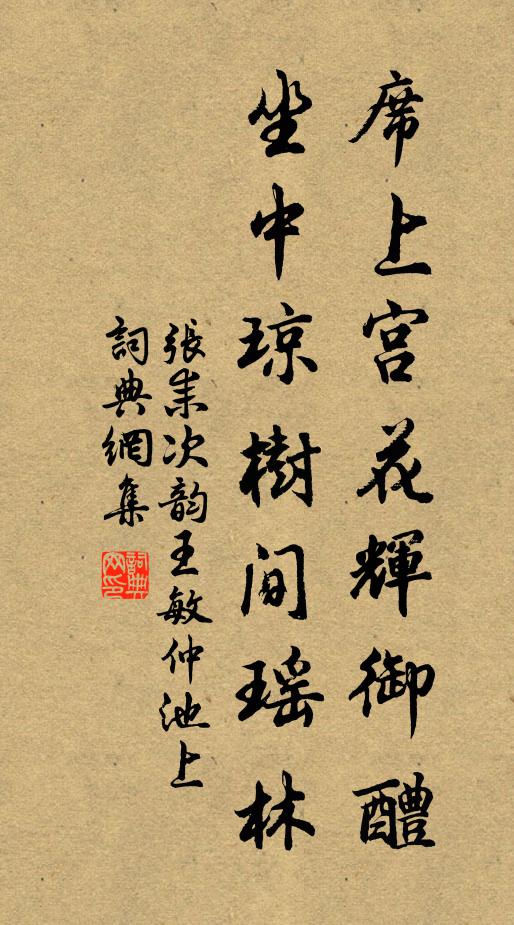 席上宫花輝御醴
坐中琼樹间瑶林
張耒次韵王敏仲池上
詞典網集
詞典网印